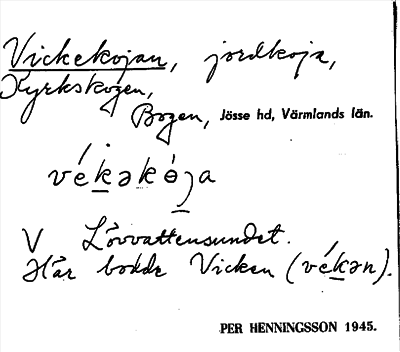 Vickekojan, jordkoja,
Kyrkskogen,
Bogen, Jösse hd, Värmlands län.
vék̲əkө́ja
V Lövvattensundet.
Här bodde Vicken (vék̲ən).
PER HENNINGSSON 1945.